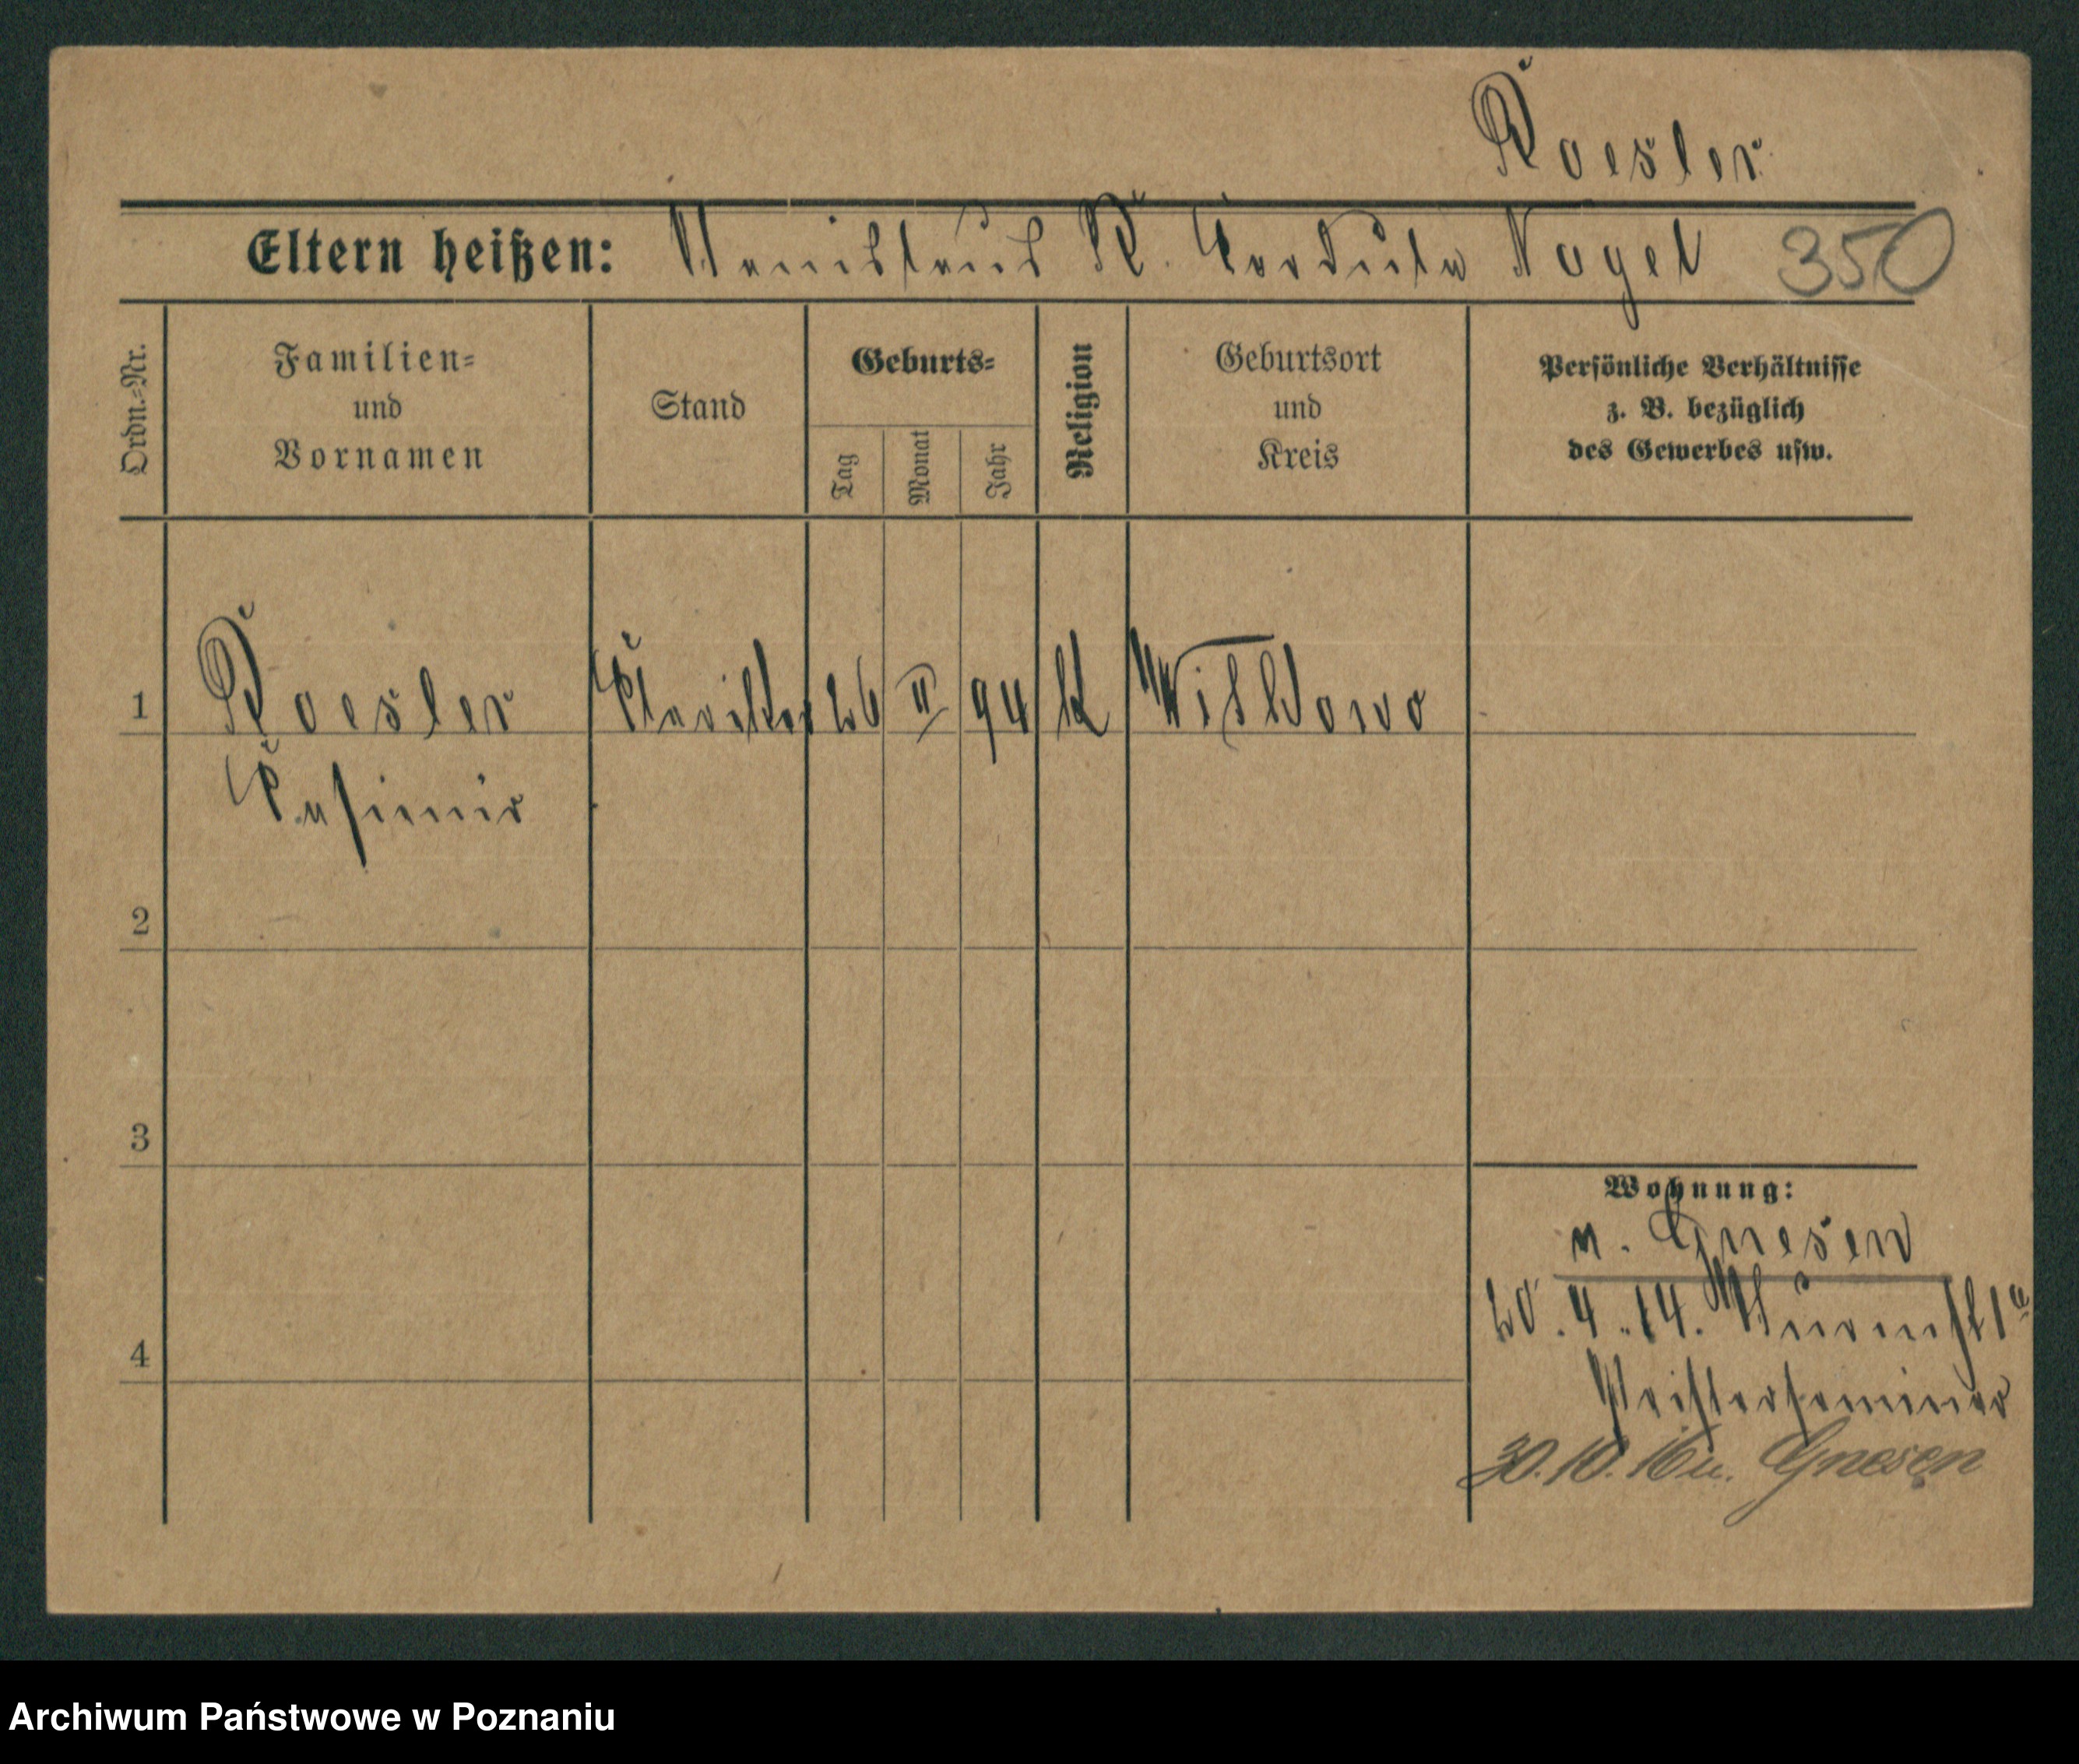 Roesler
Eltern heißen: Stanislaus R. Cordula Nagel 350
Ordn.-Nr.
Familien-
und
Vornamen
Stand
Geburts-
Tag
Monat
Jahr
Religion
Geburtsort
und
Kreis
Persönliche Verhältnisse
z. B. bezüglich
des Gewerbes usw.
1 Roesler Kleriker 26 II 94 k
Kasimir
2
3
4
Wohnung:
n. Gnesen
20.4.14.
Priesterseminar
30.10.16 n. Gnesen
Archiwum Państwowe w Poznaniu